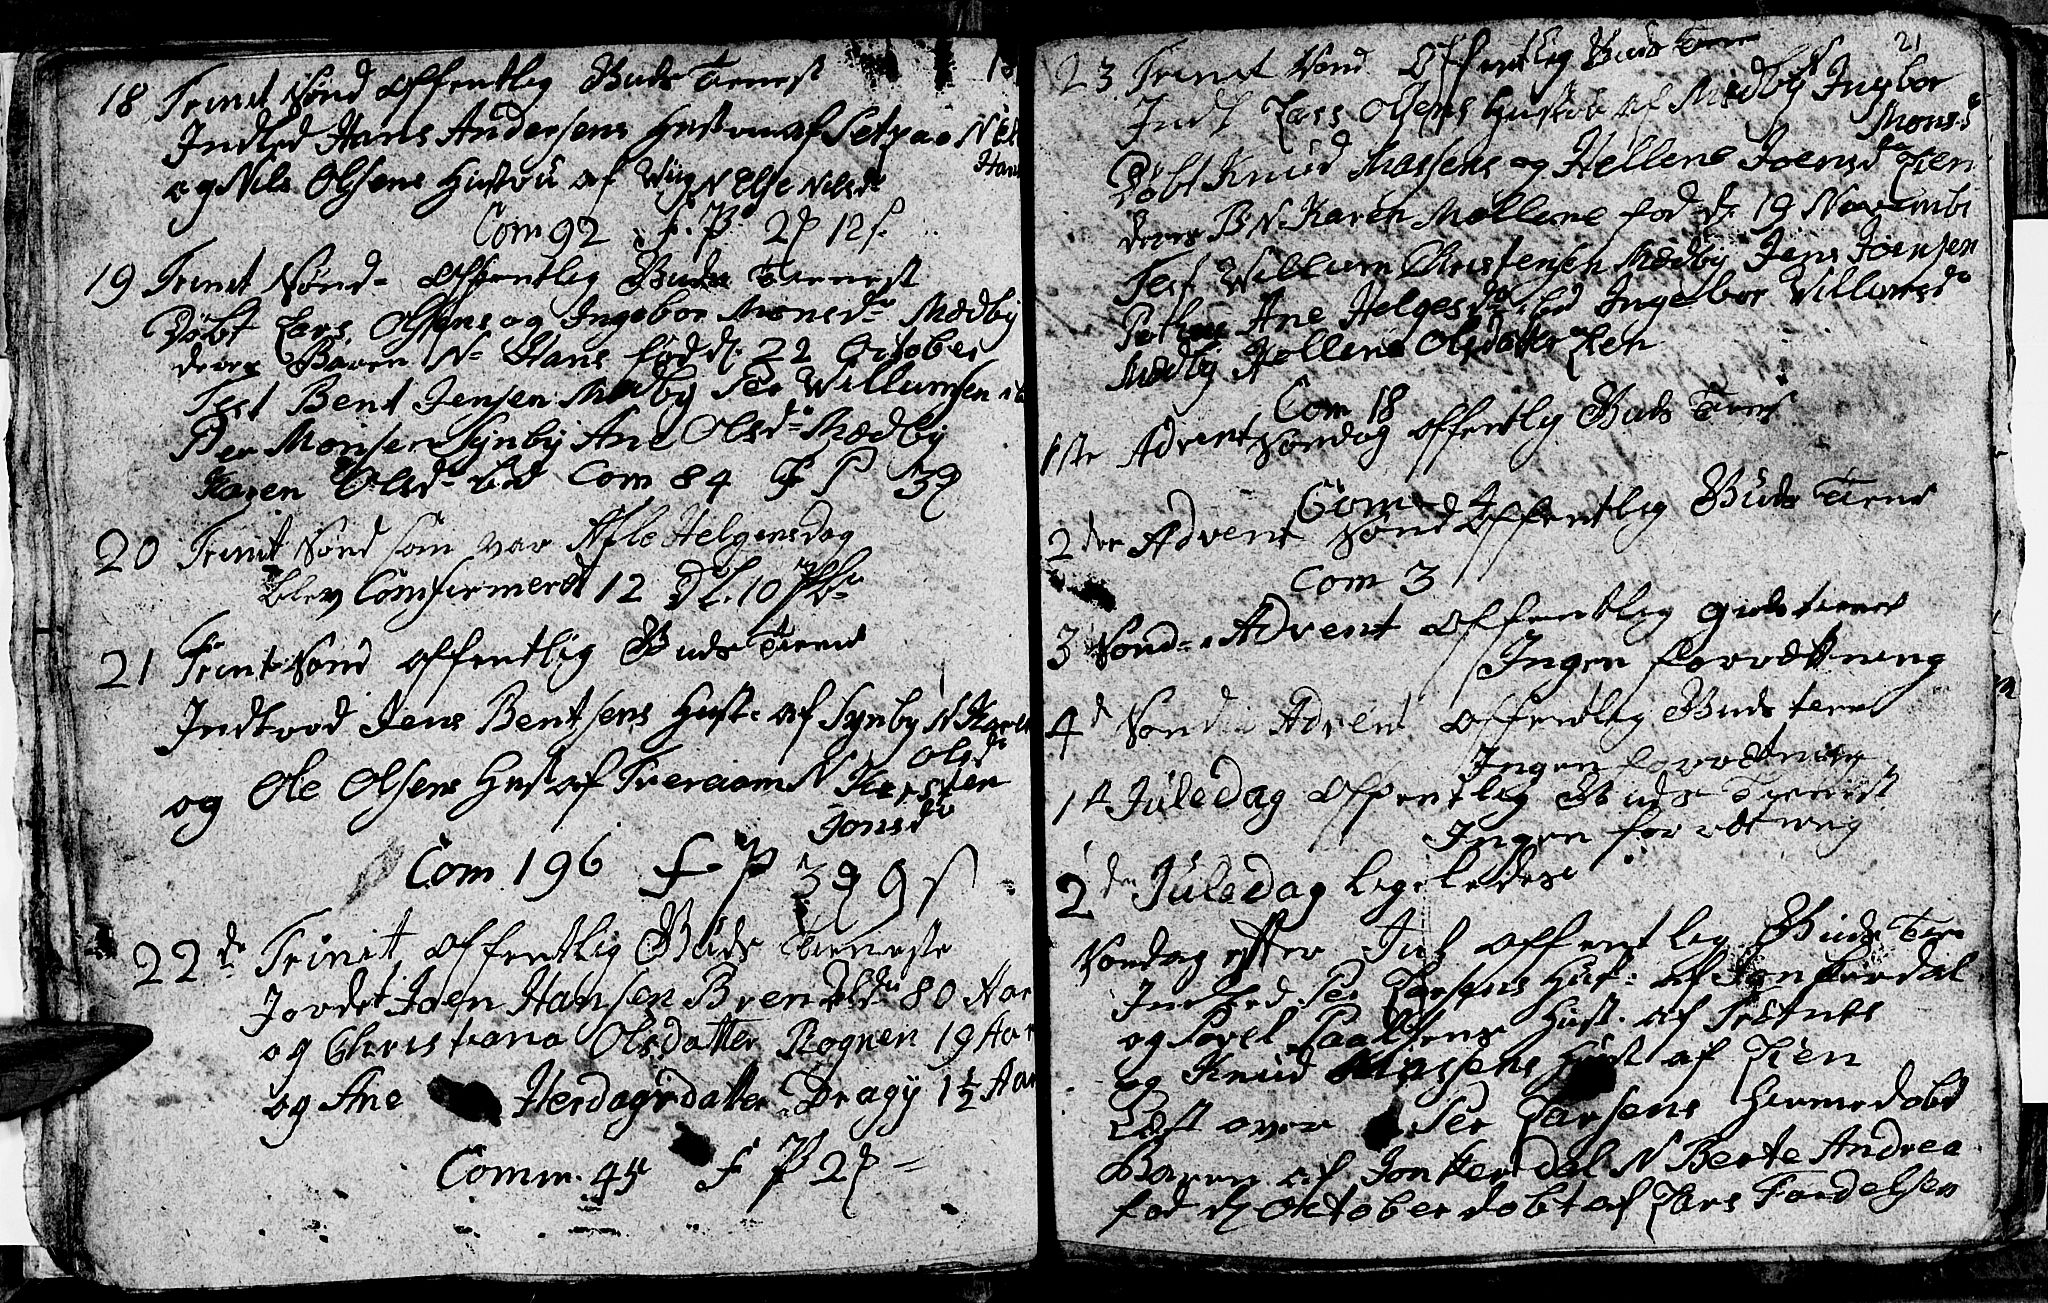 18 Trinit Sønd offentlig Guds Tienest
Indled Hans Andersens Hustru af Setzaa N Els
Hans
og Nils Olsens Hustru af Viig N Else Nilsdr
Com 92 f. P. 2 12 s.
19 Trinit Sønd- offentlig Guds Tienest
Døbt Lars Olsens og Ingebor Monsdr Mædby
deres Baren N- Hans fød d. 22 October
Test Bent Jensen Mædby Per Willumsen
Per Monsen Synby Ane Olsdr Mædby
Karen Olsdr ibd Com 84 F P 3
20 Trinit Sønd som var Alle Helgensdag
blev Comfirmeret 12 D. 10 P
21 Trinit Sønd offentlig Guds Tienest
Indtrod Jens Bentsens Hust. af Synby N Karen
Olsdr
og Ole Olsens Hust af N Kersten
Jonsdr
Com 196 f P 3 9 s
22de Trinit offentlig Guds Tieneste
Jordet Joen Hansen Brend 80 Aar
og Christiana Olsdatter Rognen 19 Aar
og Ane Herdagsdatter Dragy 1½ Aar
Comm. 45 f P 2 -
21
23 Trinit Sønd Offentlig Guds Tien
Indl Lars Olsens Hustrue af Mædby N Ingbor
Monsd
Døbt Knud Massens og Hellene Joensdr Lien
deres B N. Karen Mallene fød d. 19 Novemb
Test Willum Christensen Mædby Jens Joensen
Ane Helgesdr ibd Ingebor Villumsdr
Mædby Hellene Olsdatter Lien
Com 18
1ste Advent Søndag offentlig Guds Tienst
Com- 4
2den Advent Sønd Offentlig Guds Tienst
Com 3
3 Sønd- Advent offentlig Guds tienest
Ingen forrætning
4d Sønd i Advent offentlig Guds tiene
Ingen forrætning
1st Juledag offentlig Guds Tienest
Ingen forrætning
2den Juledag ligeledes
Søndag efter Jul offentlig Guds Tien
Indled Per Larsens Hust: af Jonkerdal
og Povel Paalsens Hust. af
og Knud Massens Hust af Lien
Læst over Per Larsens Hiemedøbt
Baren af Jonkerdal N Berte Andrea
fød d October døbt af Lars Fordelsen